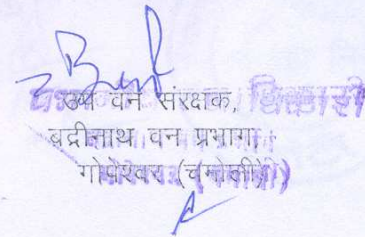 उप वन संरक्षक,
बद्रीनाथ वन प्रभाग,
गोपेश्वर (चमोली)